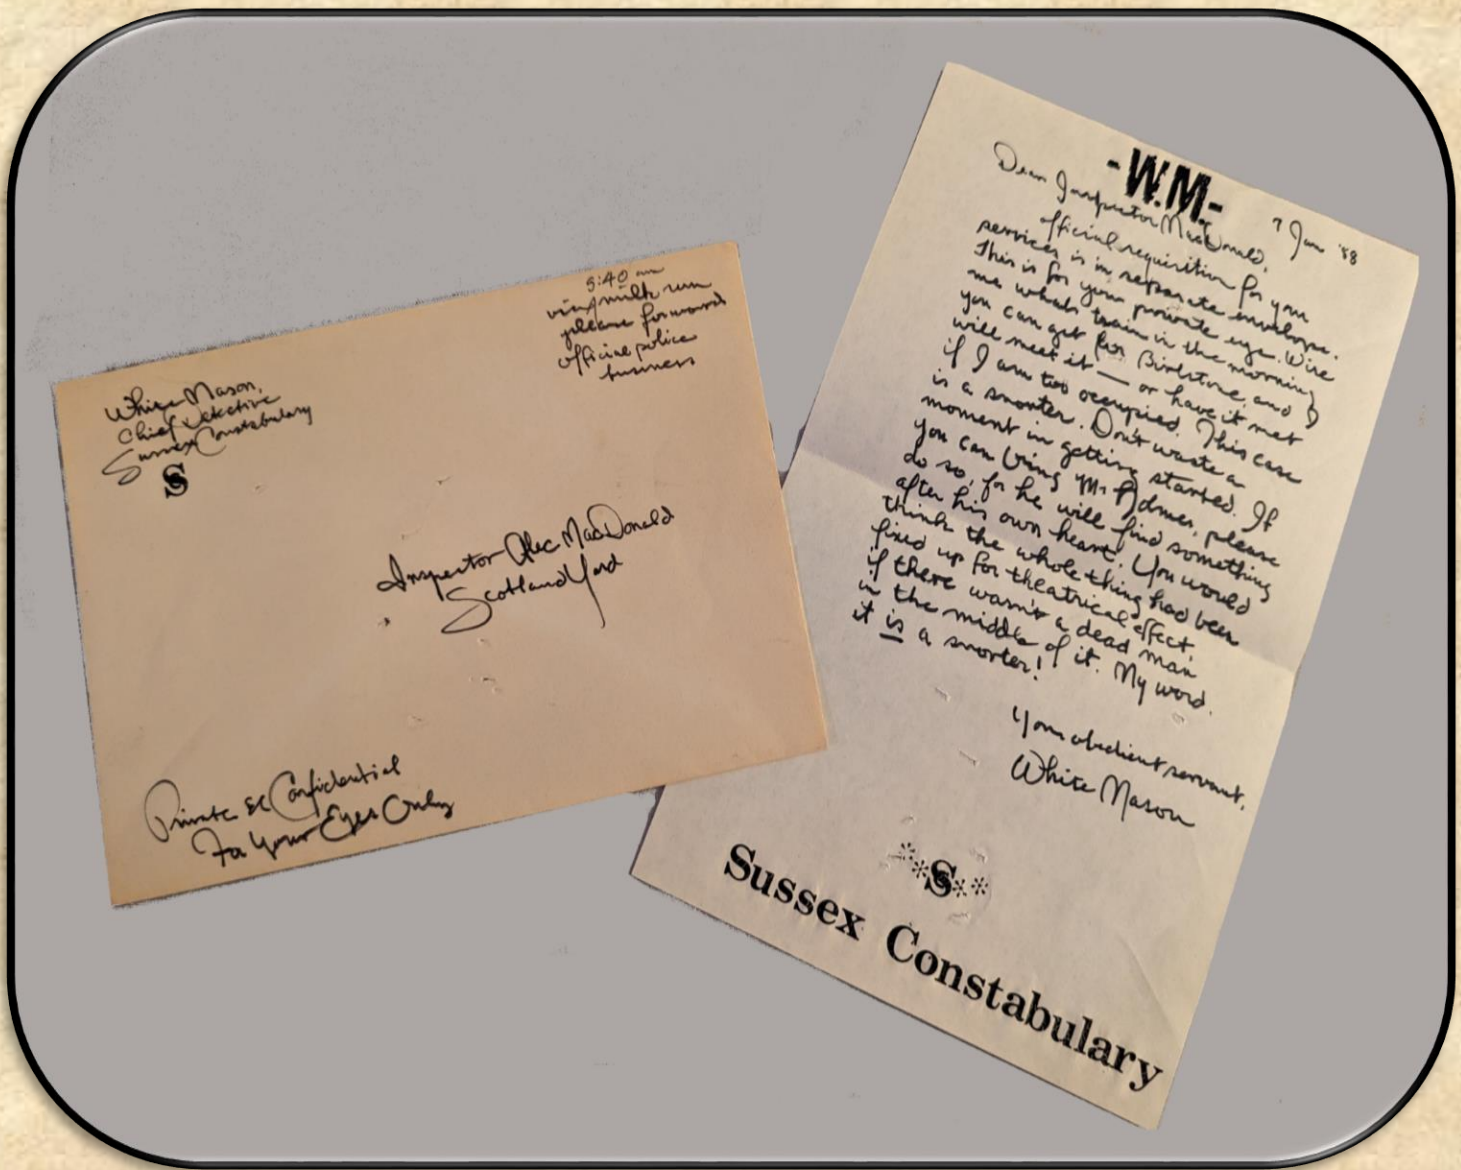 5:40 am
via milk run
please forward
official police
business
White Mason,
Chief Detective
Sussex Constabulary
S
Inspector Alec MacDonald
Scotland Yard
Private & Confidential
For Your Eyes Only
-W.M-
7 Jan '88
Dear Inspector MacDonald,
Official requisition for your
services is in separate envelope.
This is for your private eye. Wire
me what train in the morning
you can get for Birlstone, and I
will meet it — or have it met
if I am too occupied. This case
is a snorter. Don't waste a
moment in getting started. If
you can bring Mr Holmes, please
do so, for he will find something
after his own heart. You would
think the whole thing had been
fixed up for theatrical effect,
if there wasn't a dead man
in the middle of it. My word.
it is a snorter!
Your obedient servant,
White Mason
**S**
Sussex Constabulary